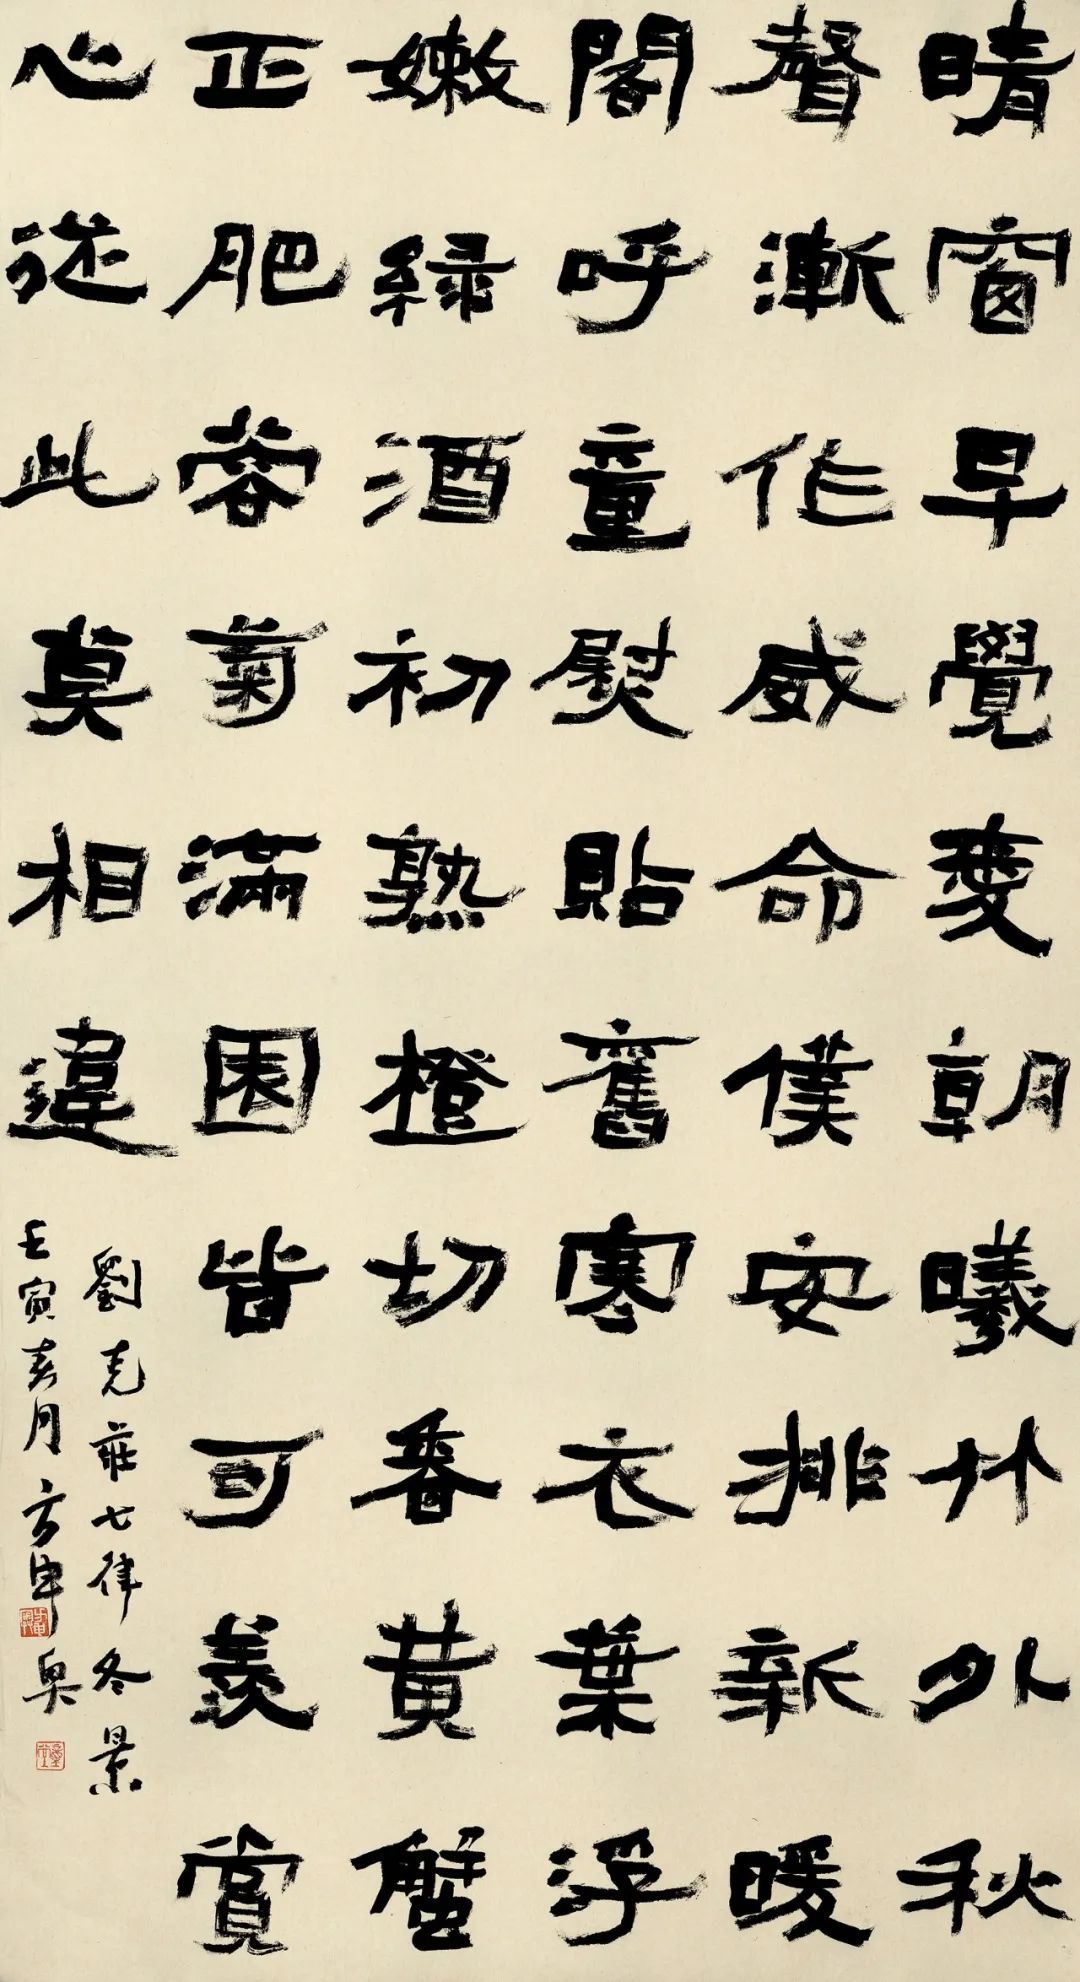 晴窗早覺愛朝曦竹外秋
聲漸作威命僕安排新暖
閣呼童熨貼舊寒衣葉浮
嫩緑酒初熟橙切香黄蟹
正肥蓉菊滿園皆可羨賞
心從此莫相違
劉克莊七律冬景
壬寅月方